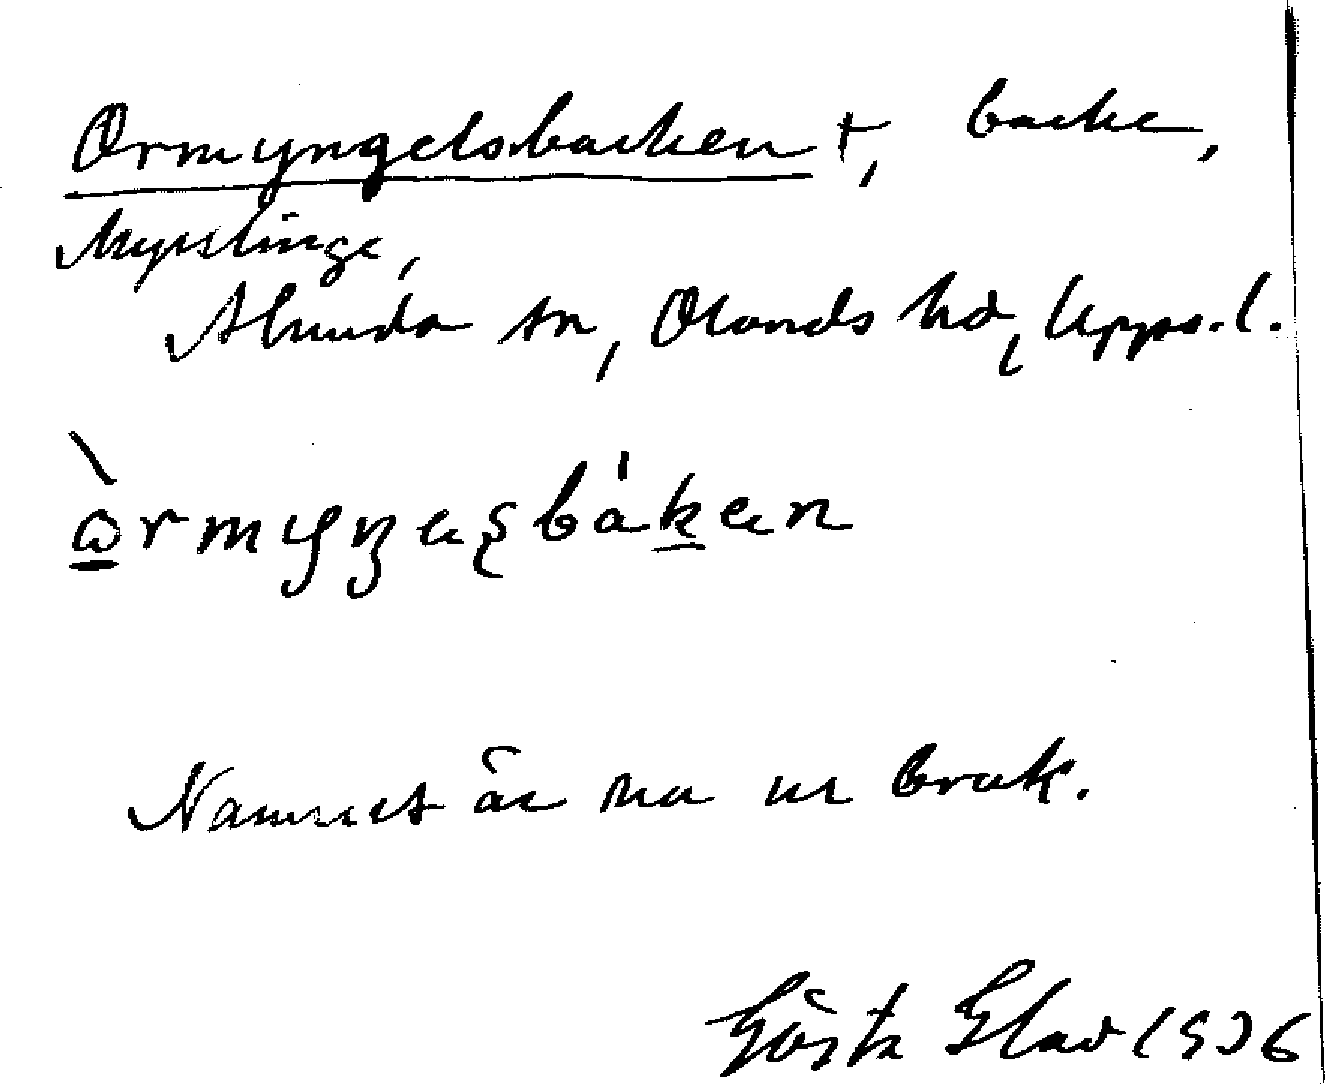 Ormyngelsbacken †, backe,
Myrslinge,
Alunda sn, Olands hd, Upps. l.
Namnet är nu ur bruk.
Gösta Elav 1936